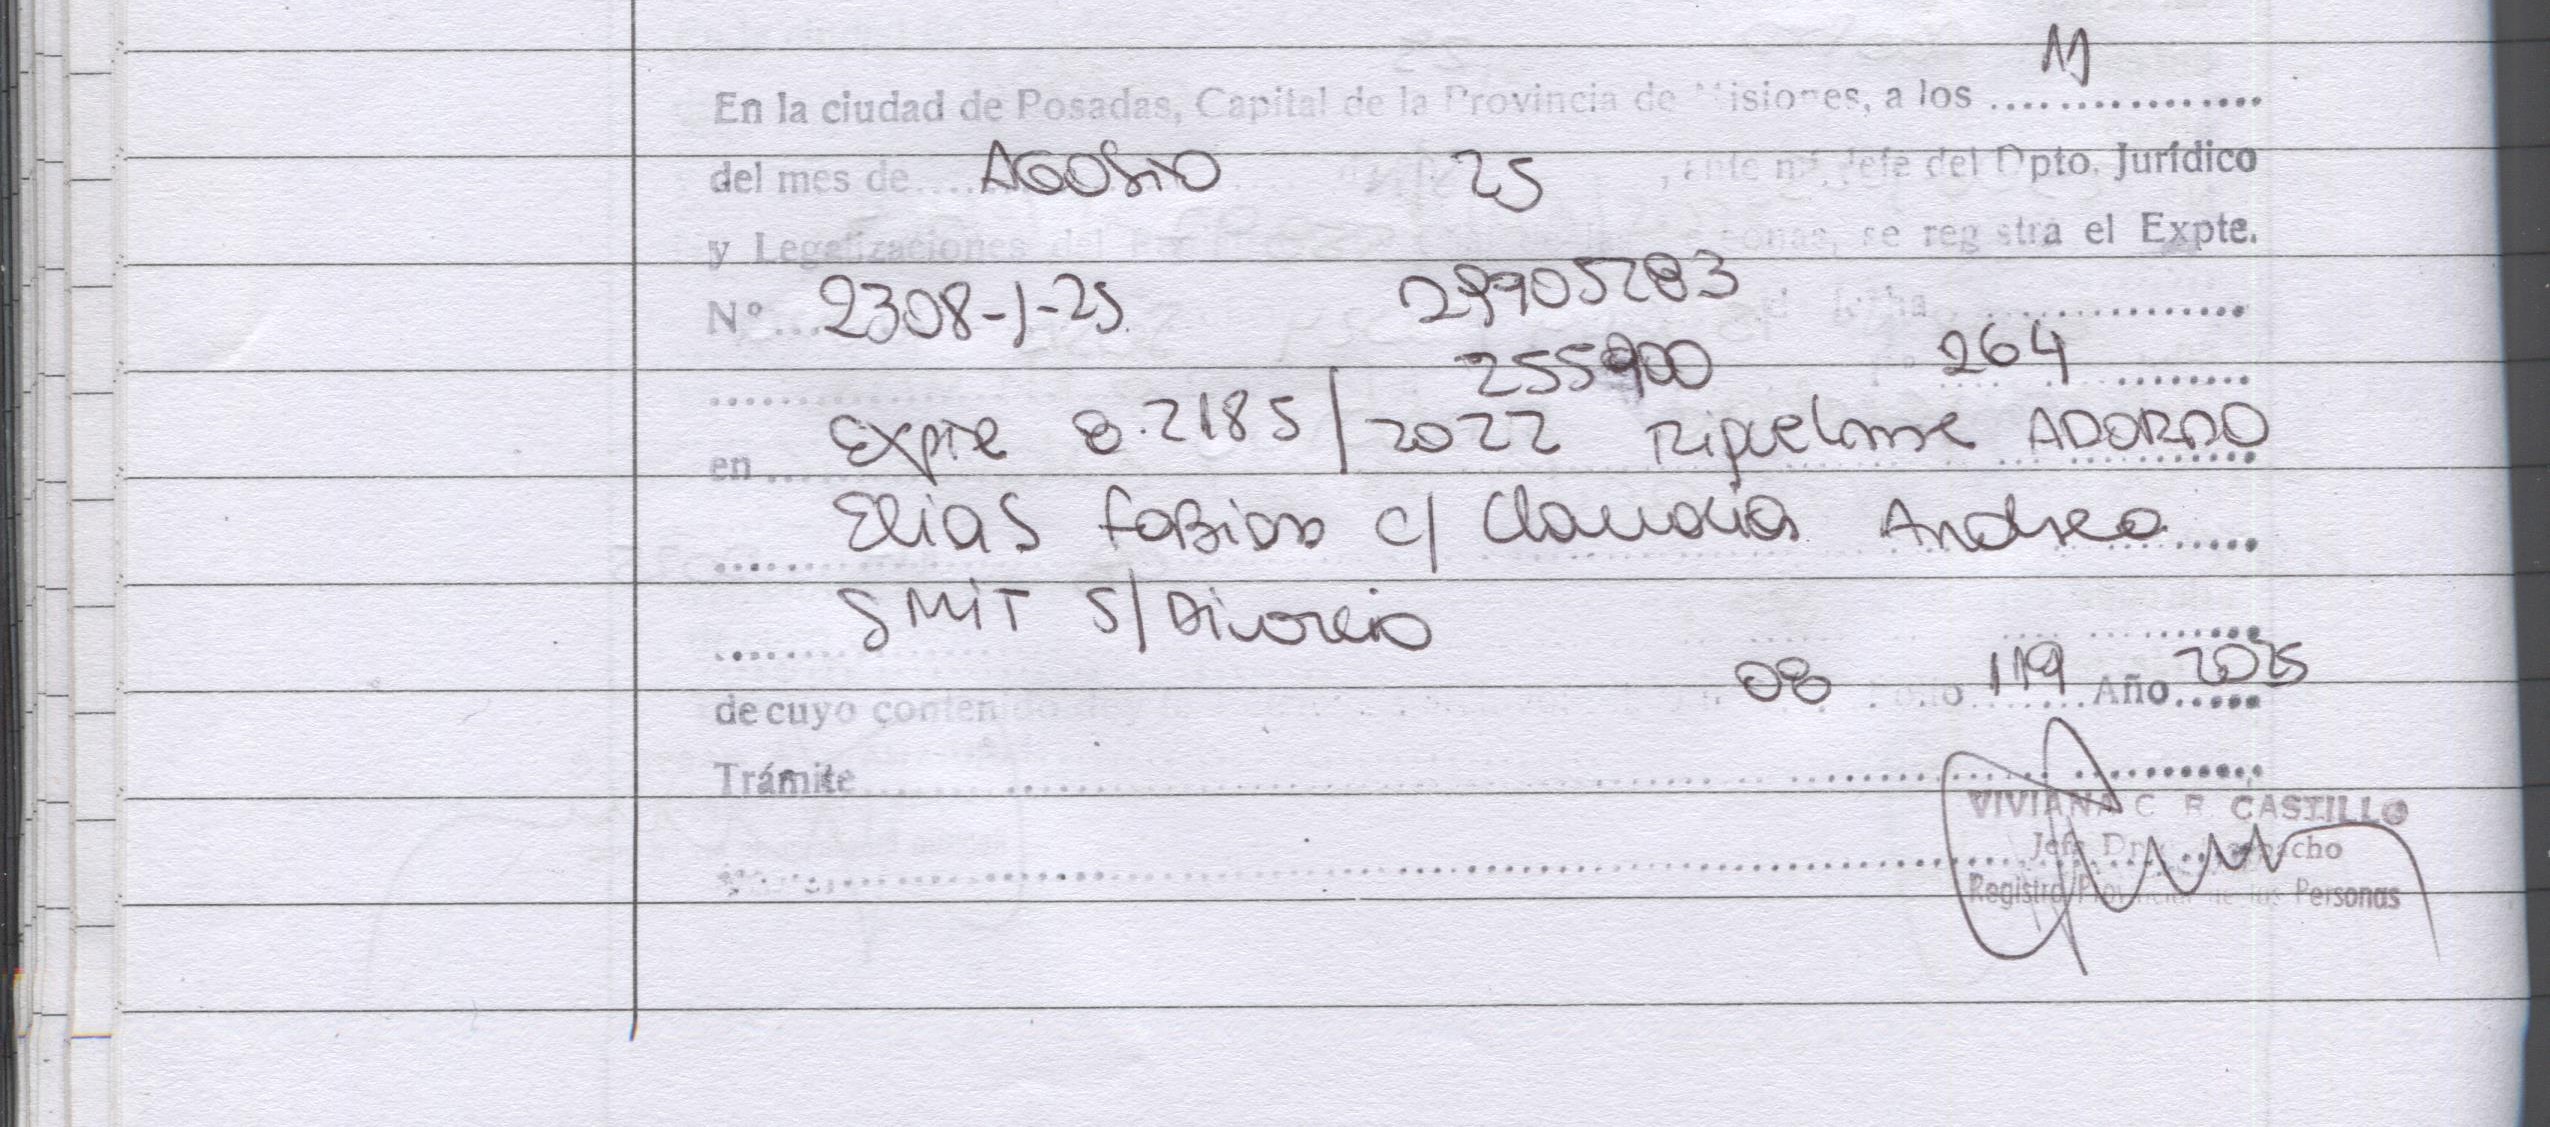 11
En la ciudad de Posadas, Capital de la Provincia de Misiones, a los ................
del mes de .... AGOSTO 25 , ante mí, Jefe del Dpto. Jurídico
y Legalizaciones del se registra el Expte.
Nº... 2308-J-25 29905283 fecha ..............
255900 264 ........
en ... Expte 8.2185/2022 Riquelme ADORNO
Elias Fabian c/ Claudia Andrea .....
SMiT S/Divorcio
08 119 Año 2025
de cuyo contenido
Trámite
VIVIANA C R CASTILLO
Jefe Dpto Despacho
Registro Provincial de las Personas